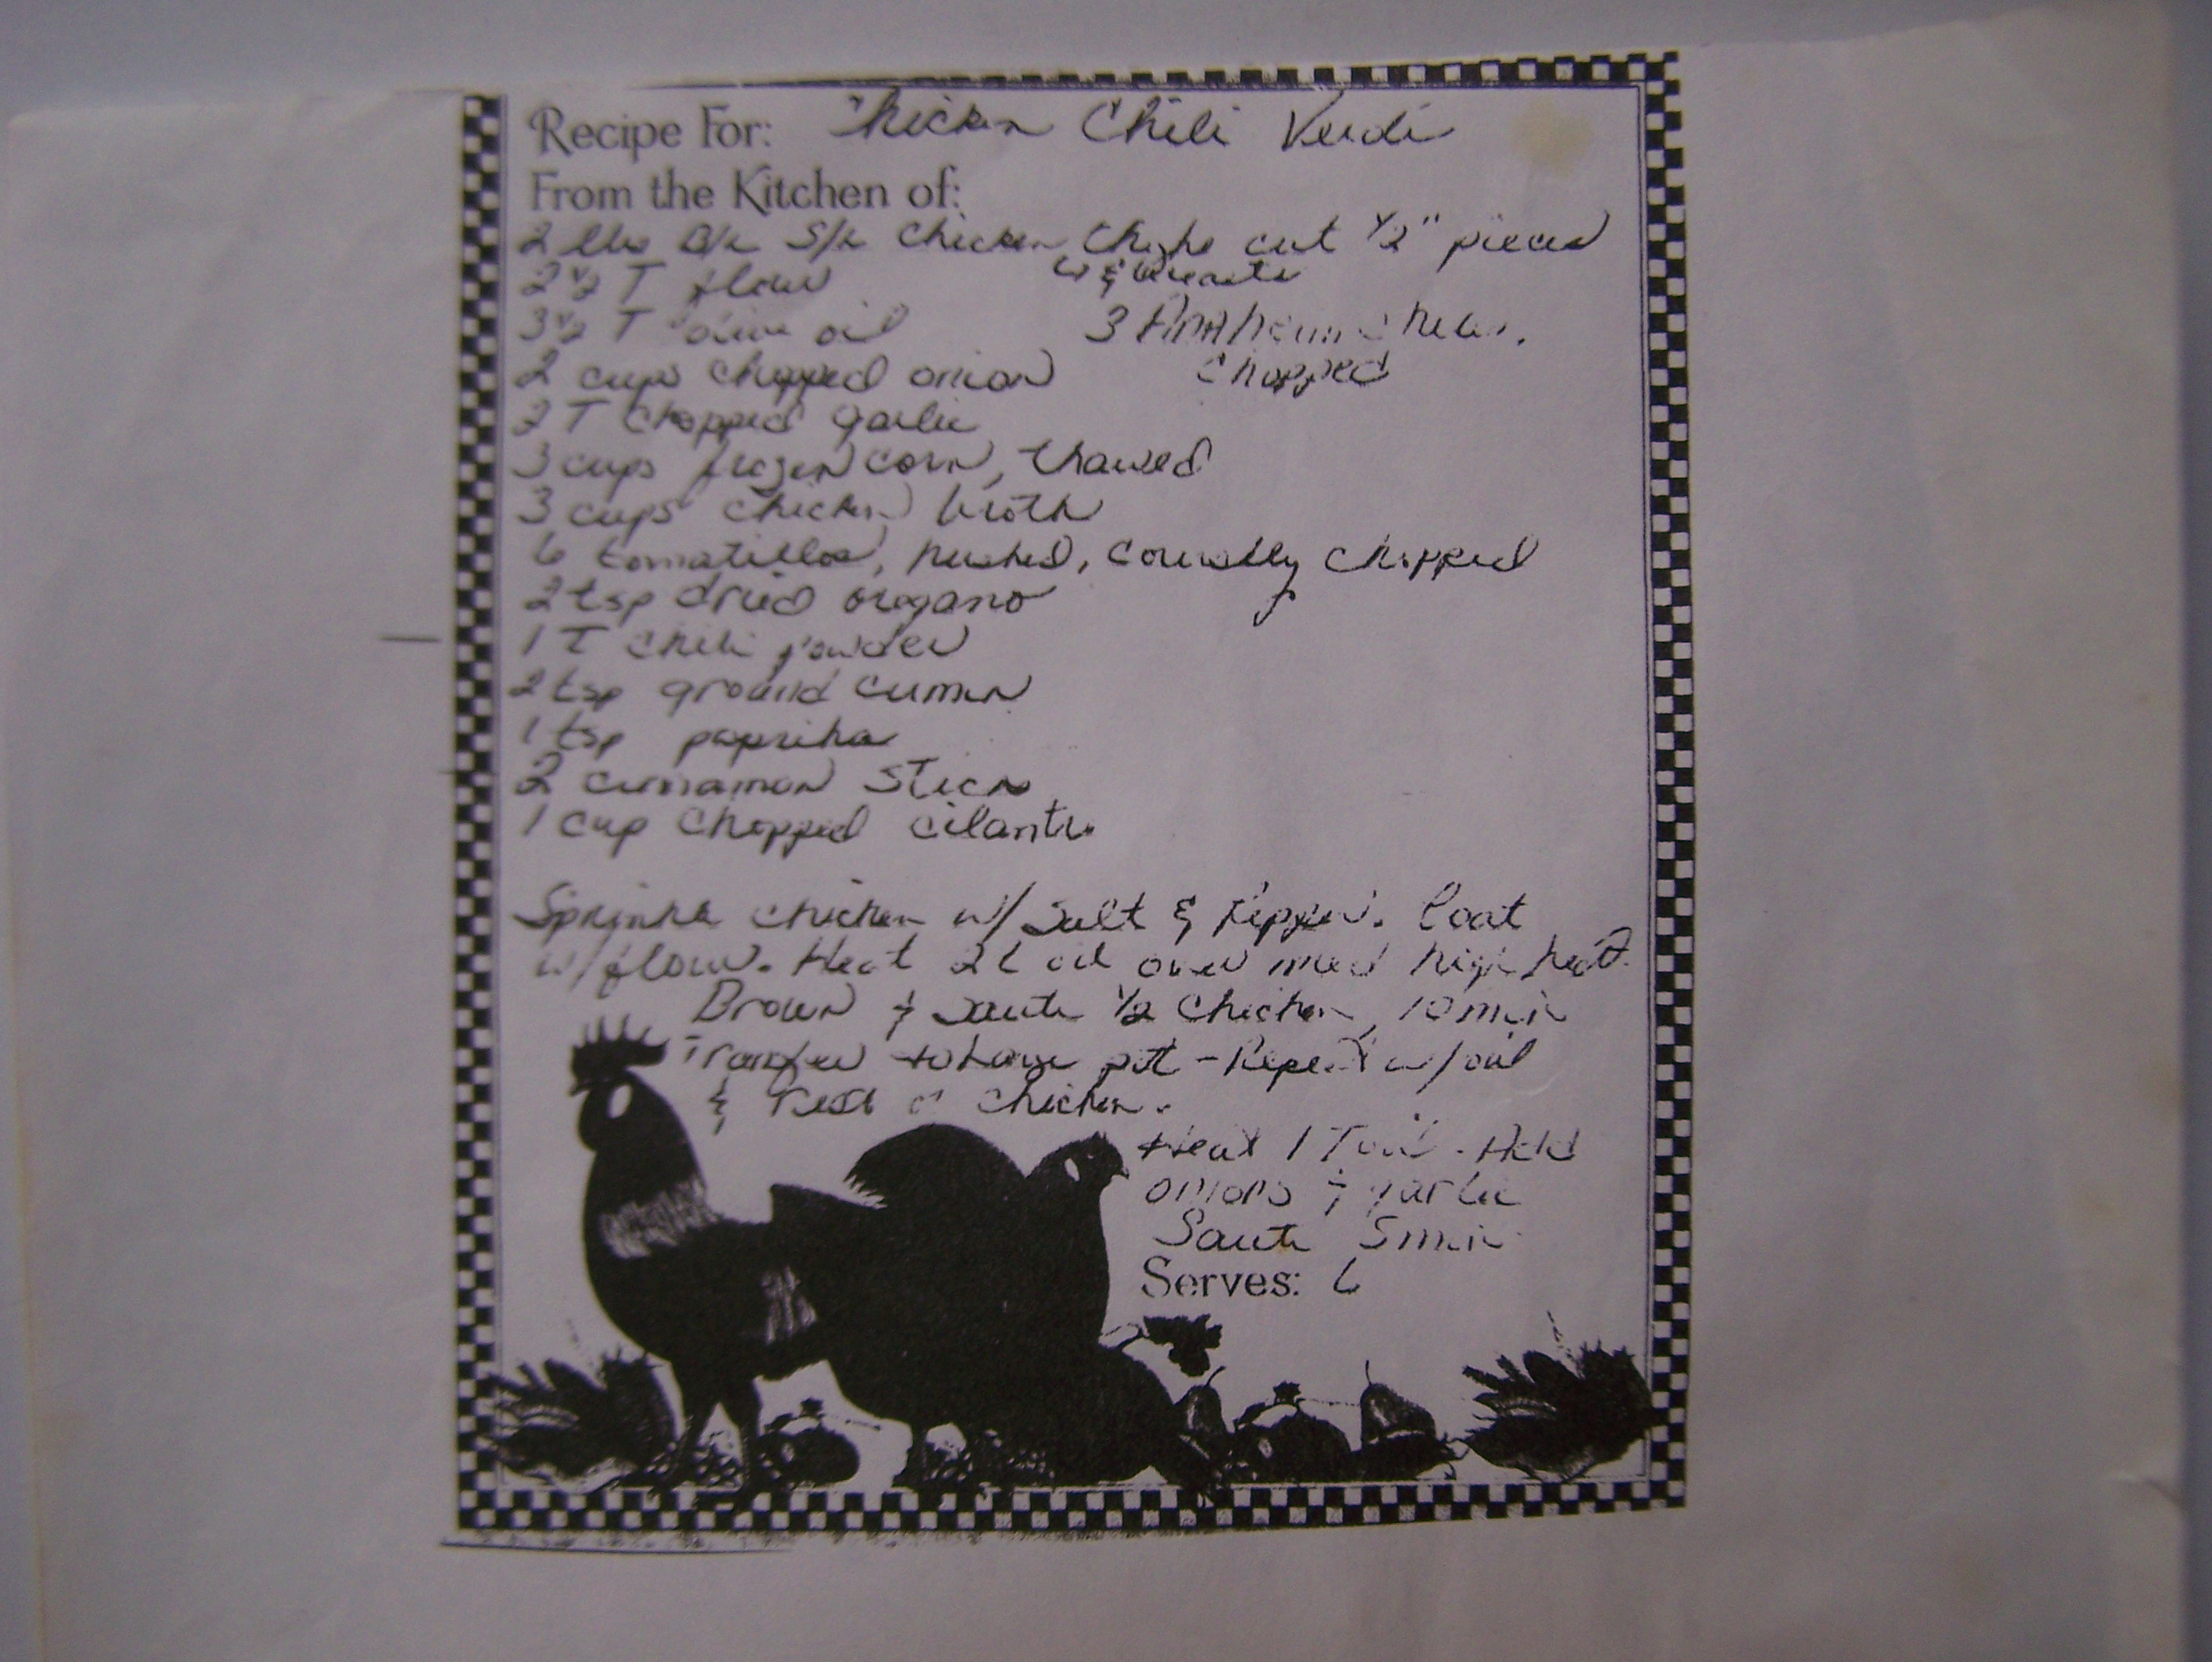 Recipe For: Chicken Chili Verdi
From the Kitchen of:
2 lbs B/l S/l Chicken Thighs cut 1/2" pieces
& Breasts
2 1/2 T flour
3 1/2 T olive oil
3 chiles,
chopped
2 cups chopped onion
2 T chopped garlic
3 cups frozen corn, thawed
3 cups chicken broth
6 tomatillos, husked, coarsely chopped
2 tsp dried oregano
1 T chili powder
2 tsp ground cumin
1 tsp paprika
2 cinnamon stick
1 cup chopped cilantro
Sprinkle chicken w/ salt & pepper. Coat
w/flour. Heat 2 t oil over med high heat.
Brown & saute 1/2 chicken, 10 min
Transfer to large pot - Repeat w/ oil
& rest of chicken.
Heat 1 T oil. Add
onions & garlic
Saute 5 min
Serves: 6